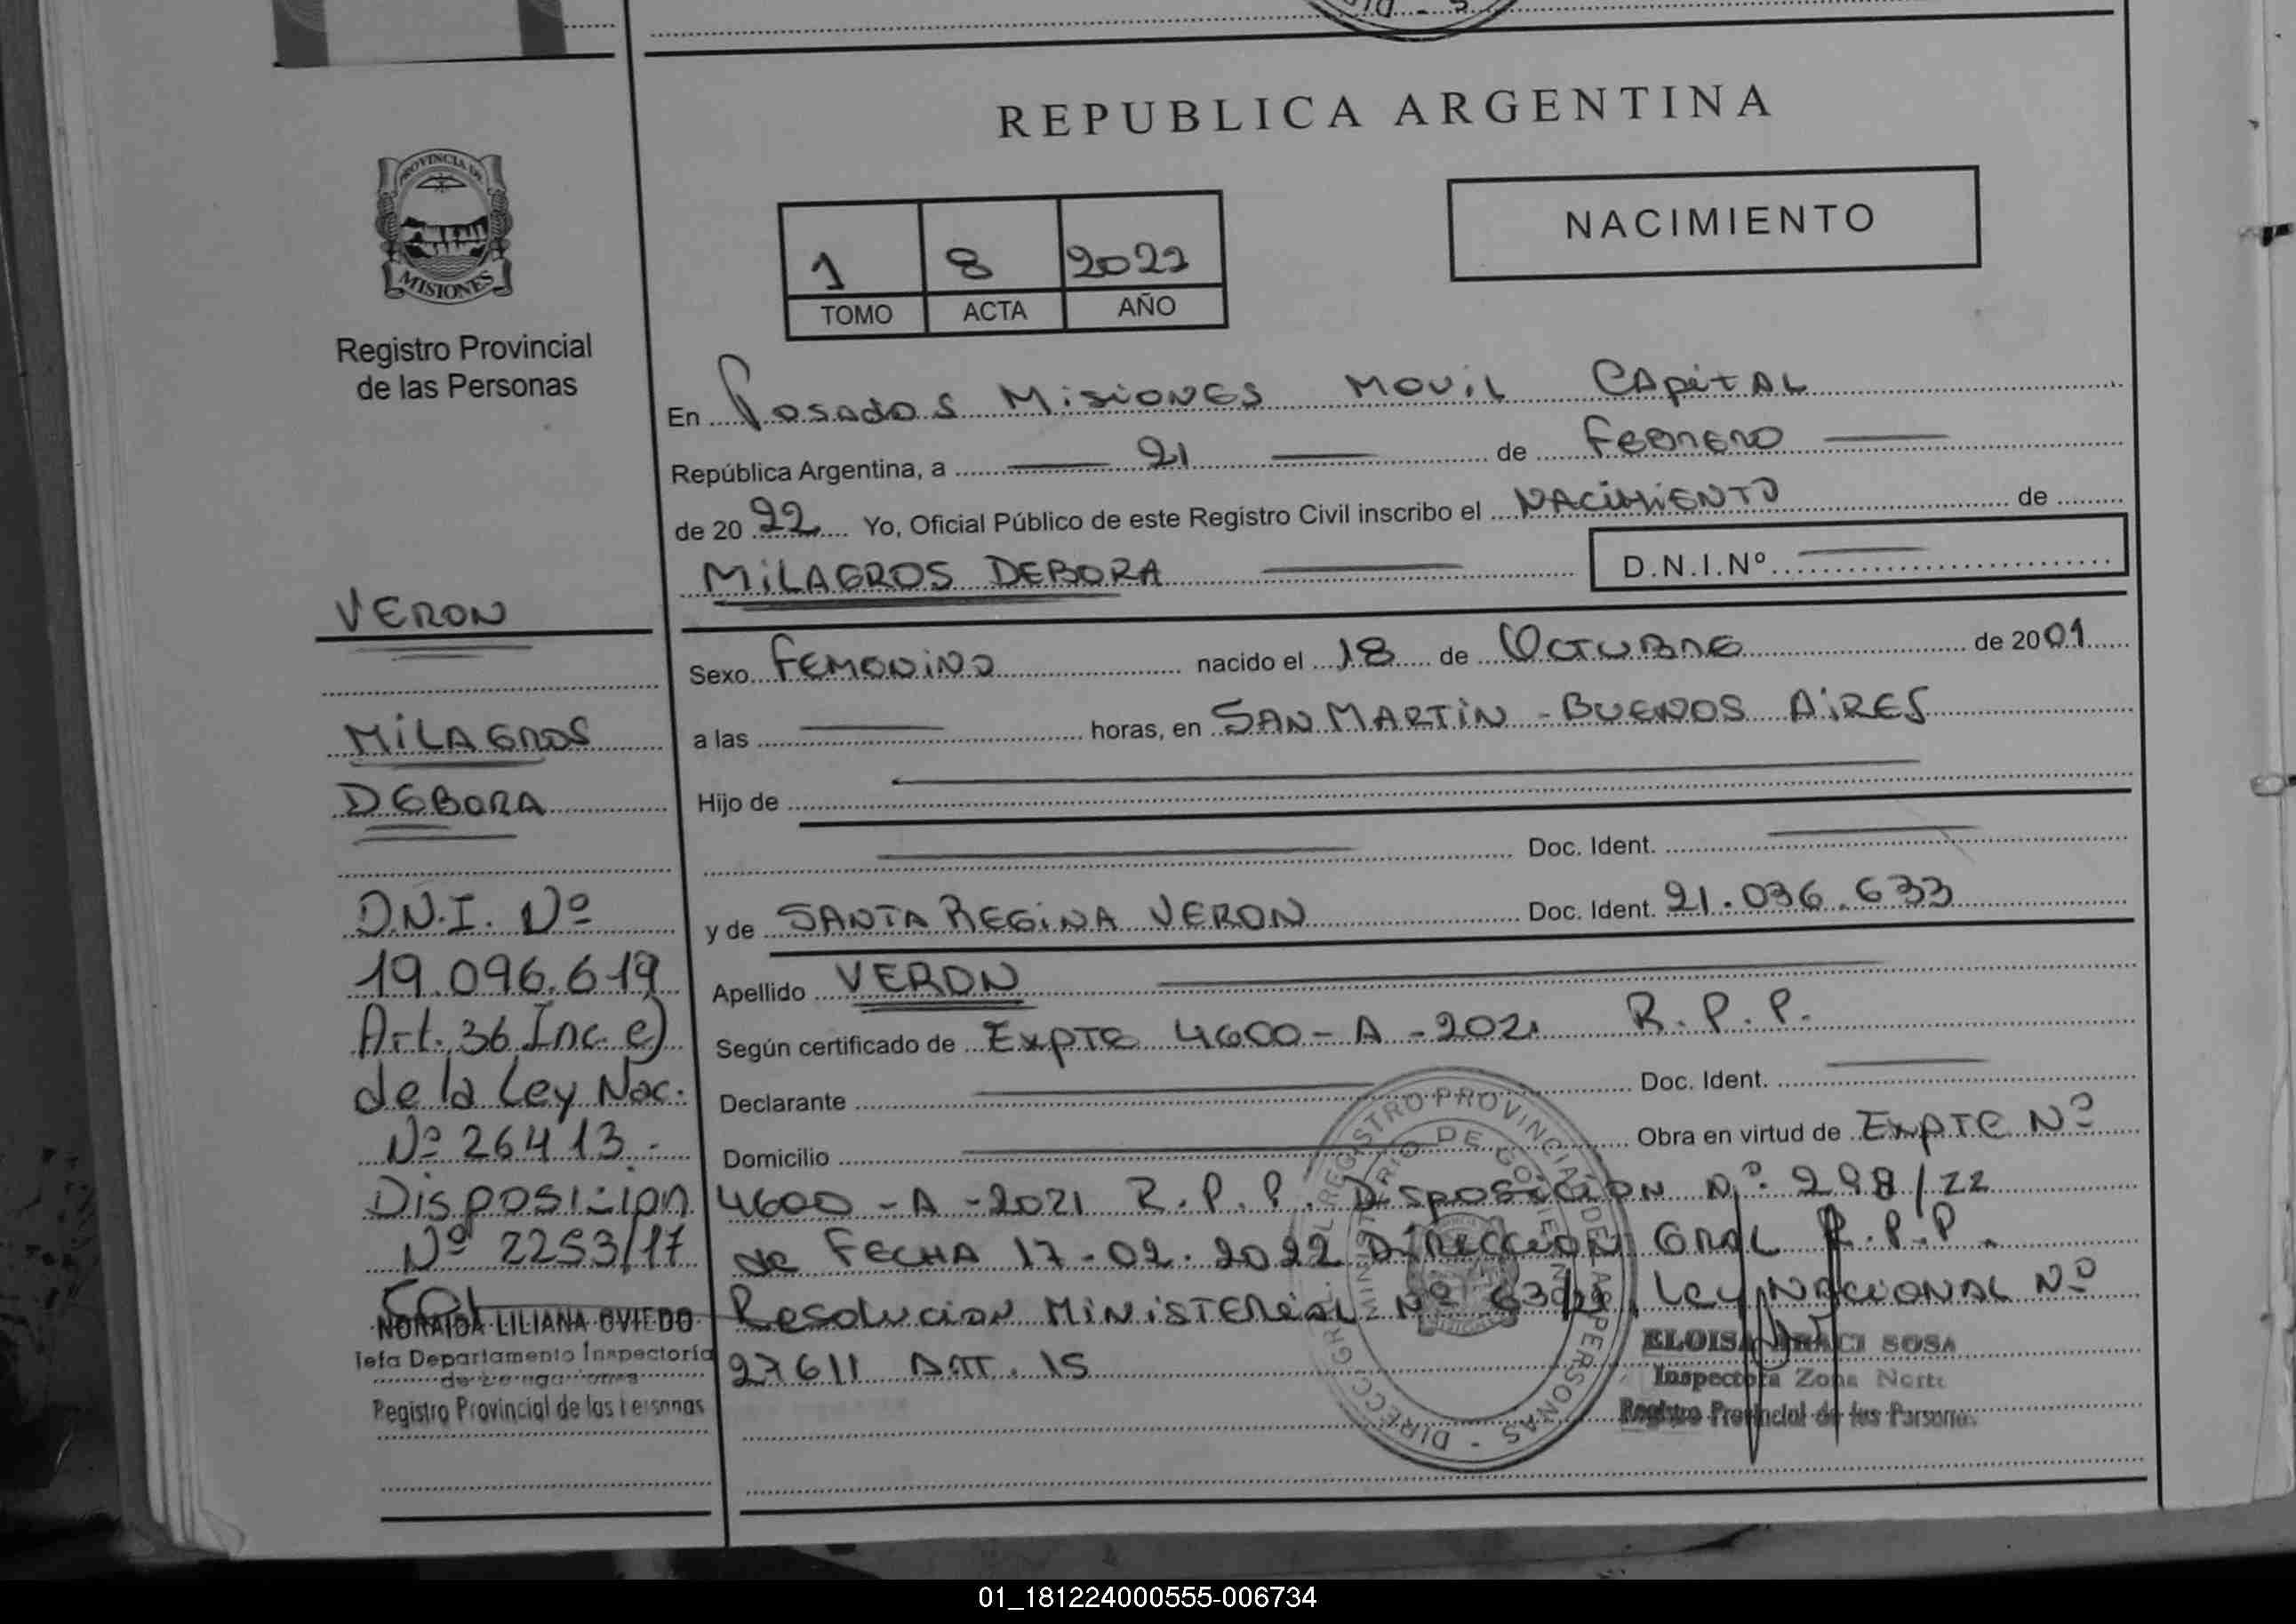 REPUBLICA ARGENTINA
PROVINCIA DE
MISIONES
Registro Provincial
de las Personas
NACIMIENTO
1 8 2022
TOMO ACTA AÑO
En Posadas Misiones Movil Capital
República Argentina, a 21 de Febrero
de 2022 Yo, Oficial Público de este Registro Civil inscribo el NACIMIENTO de
MILAGROS DEBORA D.N.I.Nº
Sexo Femenino nacido el 18 de Octubre de 2001
a las horas, en SAN MARTIN - BUENOS AIRES
Hijo de
Doc. Ident.
y de SANTA REGINA VERON Doc. Ident. 21.036.633
Apellido VERON
Según certificado de Expte 4600-A-2021 R.P.P.
Declarante Doc. Ident.
Domicilio Obra en virtud de Expte Nº
4600-A-2021 R.P.P. Disposicion Nº 298/22
de FECHA 17-02-2022 Direccion Gral R.P.P.
Resolucion Ministerial Nº Ley Nacional Nº
27611 Art. 15
VERON
MILAGROS
DEBORA
D.N.I. Nº
19.096.619
Art. 36 Inc. e)
de la Ley Nac.
Nº 26413.-
Disposicion
Nº 2253/17
NORAIDA LILIANA OVIEDO
Jefa Departamento Inspectoría
Registro Provincial de las Personas
DIRECC. GRAL. REGISTRO PROVINCIAL DE LAS PERSONAS
MINISTERIO DE GOBIERNO
ELOISA ARACI SOSA
Inspectora Zona Norte
Registro Provincial de las Personas
01_181224000555-006734